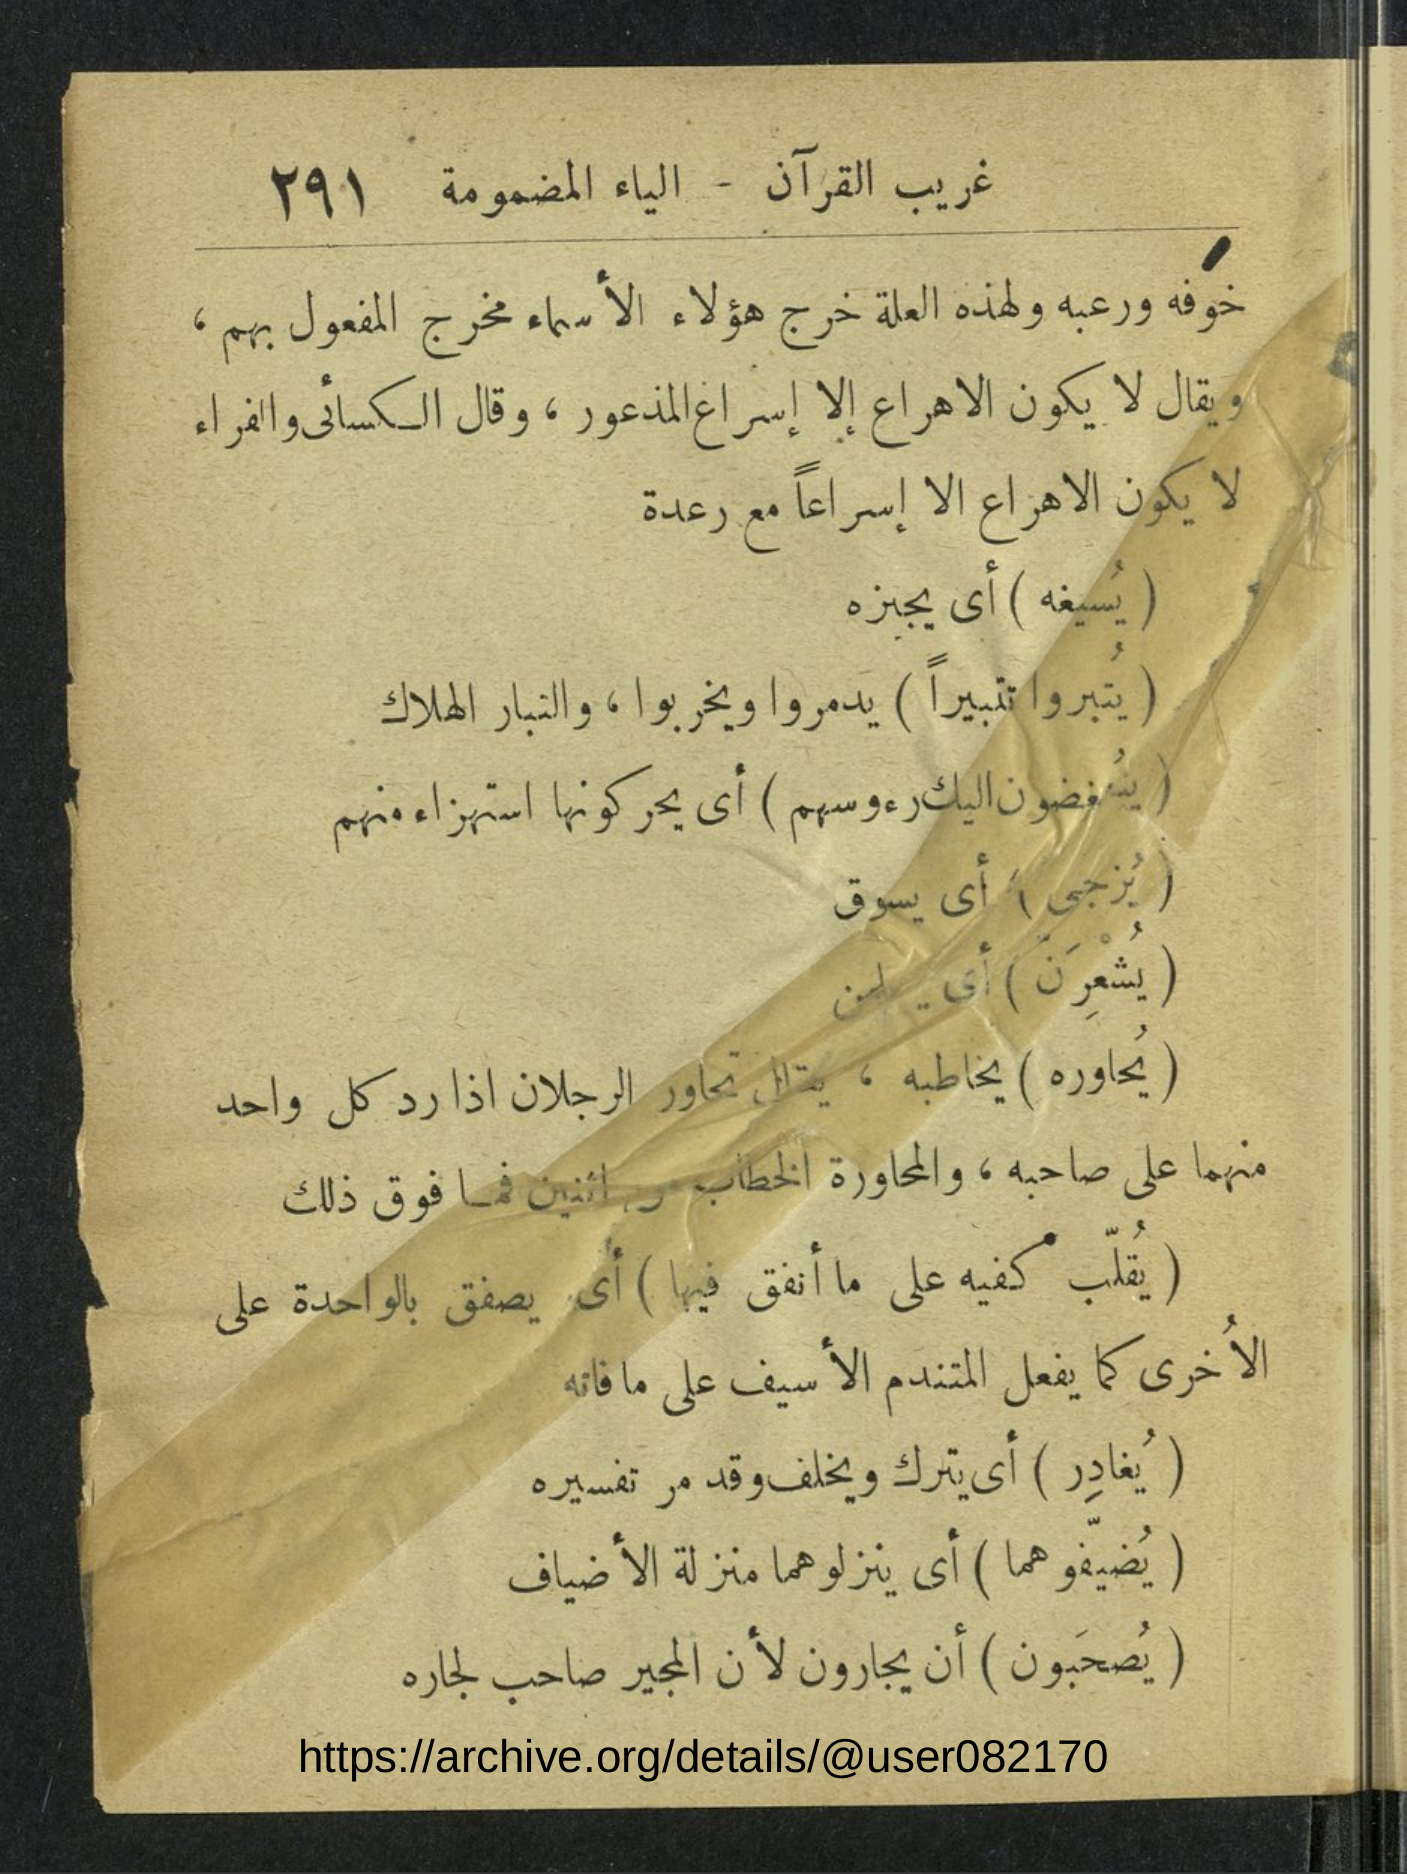 غريب القرآن - الياء المضمومة ٢٩١
خوفه ورعبه ولهذه العلة خرج هؤلاء الأسماء مخرج المفعول بهم ،
ويقال لا يكون الاهراع إلا إسراع المذعور ، وقال الكسائى والفراء
لا يكون الاهراع الا إسراعاً مع رعدة
( يُسيغه ) أى يجيزه
( يُتبروا تتبيراً ) يدمروا ويخربوا ، والتبار الهلاك
( ينُغضون اليك رءوسهم ) أى يحركونها استهزاء منهم
( يُزجى ) أى يسوق
( يُشْعِرَنّ ) أى
( يُحاوره ) يخاطبه ، يقال تحاور الرجلان اذا رد كل واحد
منهما على صاحبه ، والمحاورة الخطاب من اثنين فما فوق ذلك
( يُقلّب كفيه على ما أنفق فيها ) أى يصفق بالواحدة على
الأُخرى كما يفعل المتندم الأسيف على ما فاته
( يُغادِر ) أى يترك ويخلف وقد مر تفسيره
( يُضيّفوهما ) أى ينزلوهما منزلة الأضياف
( يُصحَبون ) أن يجارون لأن المجير صاحب لجاره
https://archive.org/details/@user082170